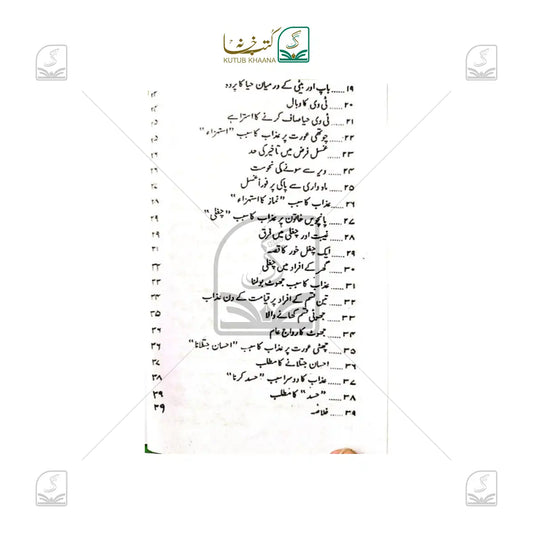 کتب خانہ
KUTUB KHAANA
۱۹ ...... باپ اور بیٹی کے درمیان حیا کا پردہ
۲۰ ...... ٹی وی کا وبال ۲۴
۲۱ ...... ٹی وی حیا صاف کرنے کا استرا ہے ۲۵
۲۲ ...... چوتھی عورت پر عذاب کا سبب "استہزاء" ۲۵
۲۳ ...... غسل فرض میں تاخیر کی حد ۲۶
۲۴ ...... دیر سے سونے کی نحوست
۲۵ ...... ماہ واری سے پاکی پر فوراً غسل
۲۶ ...... عذاب کا سبب "نماز کا استہزاء"
۲۷ ...... پانچویں خاتون پر عذاب کا سبب "چغلی" ۲۹
۲۸ ...... غیبت اور چغلی میں فرق ۲۹
۲۹ ...... ایک چغل خور کا قصہ ۳۱
۳۰ ...... گھر کے افراد میں چغلی ۳۲
۳۱ ...... عذاب کا سبب جھوٹ بولنا ۳۲
۳۲ ...... تین قسم کے افراد پر قیامت کے دن عذاب ۳۳
۳۳ ...... جھوٹی قسم کھانے والا ۳۵
۳۴ ...... جھوٹ کا رواج عام ۳۶
۳۵ ...... چھٹی عورت پر عذاب کا سبب "احسان جتلانا" ۳۶
۳۶ ...... احسان جتلانے کا مطلب ۳۷
۳۷ ...... عذاب کا دوسرا سبب "حسد کرنا" ۳۸
۳۸ ...... "حسد" کا مطلب ۳۹
۳۹ ...... خلاصہ ۳۹